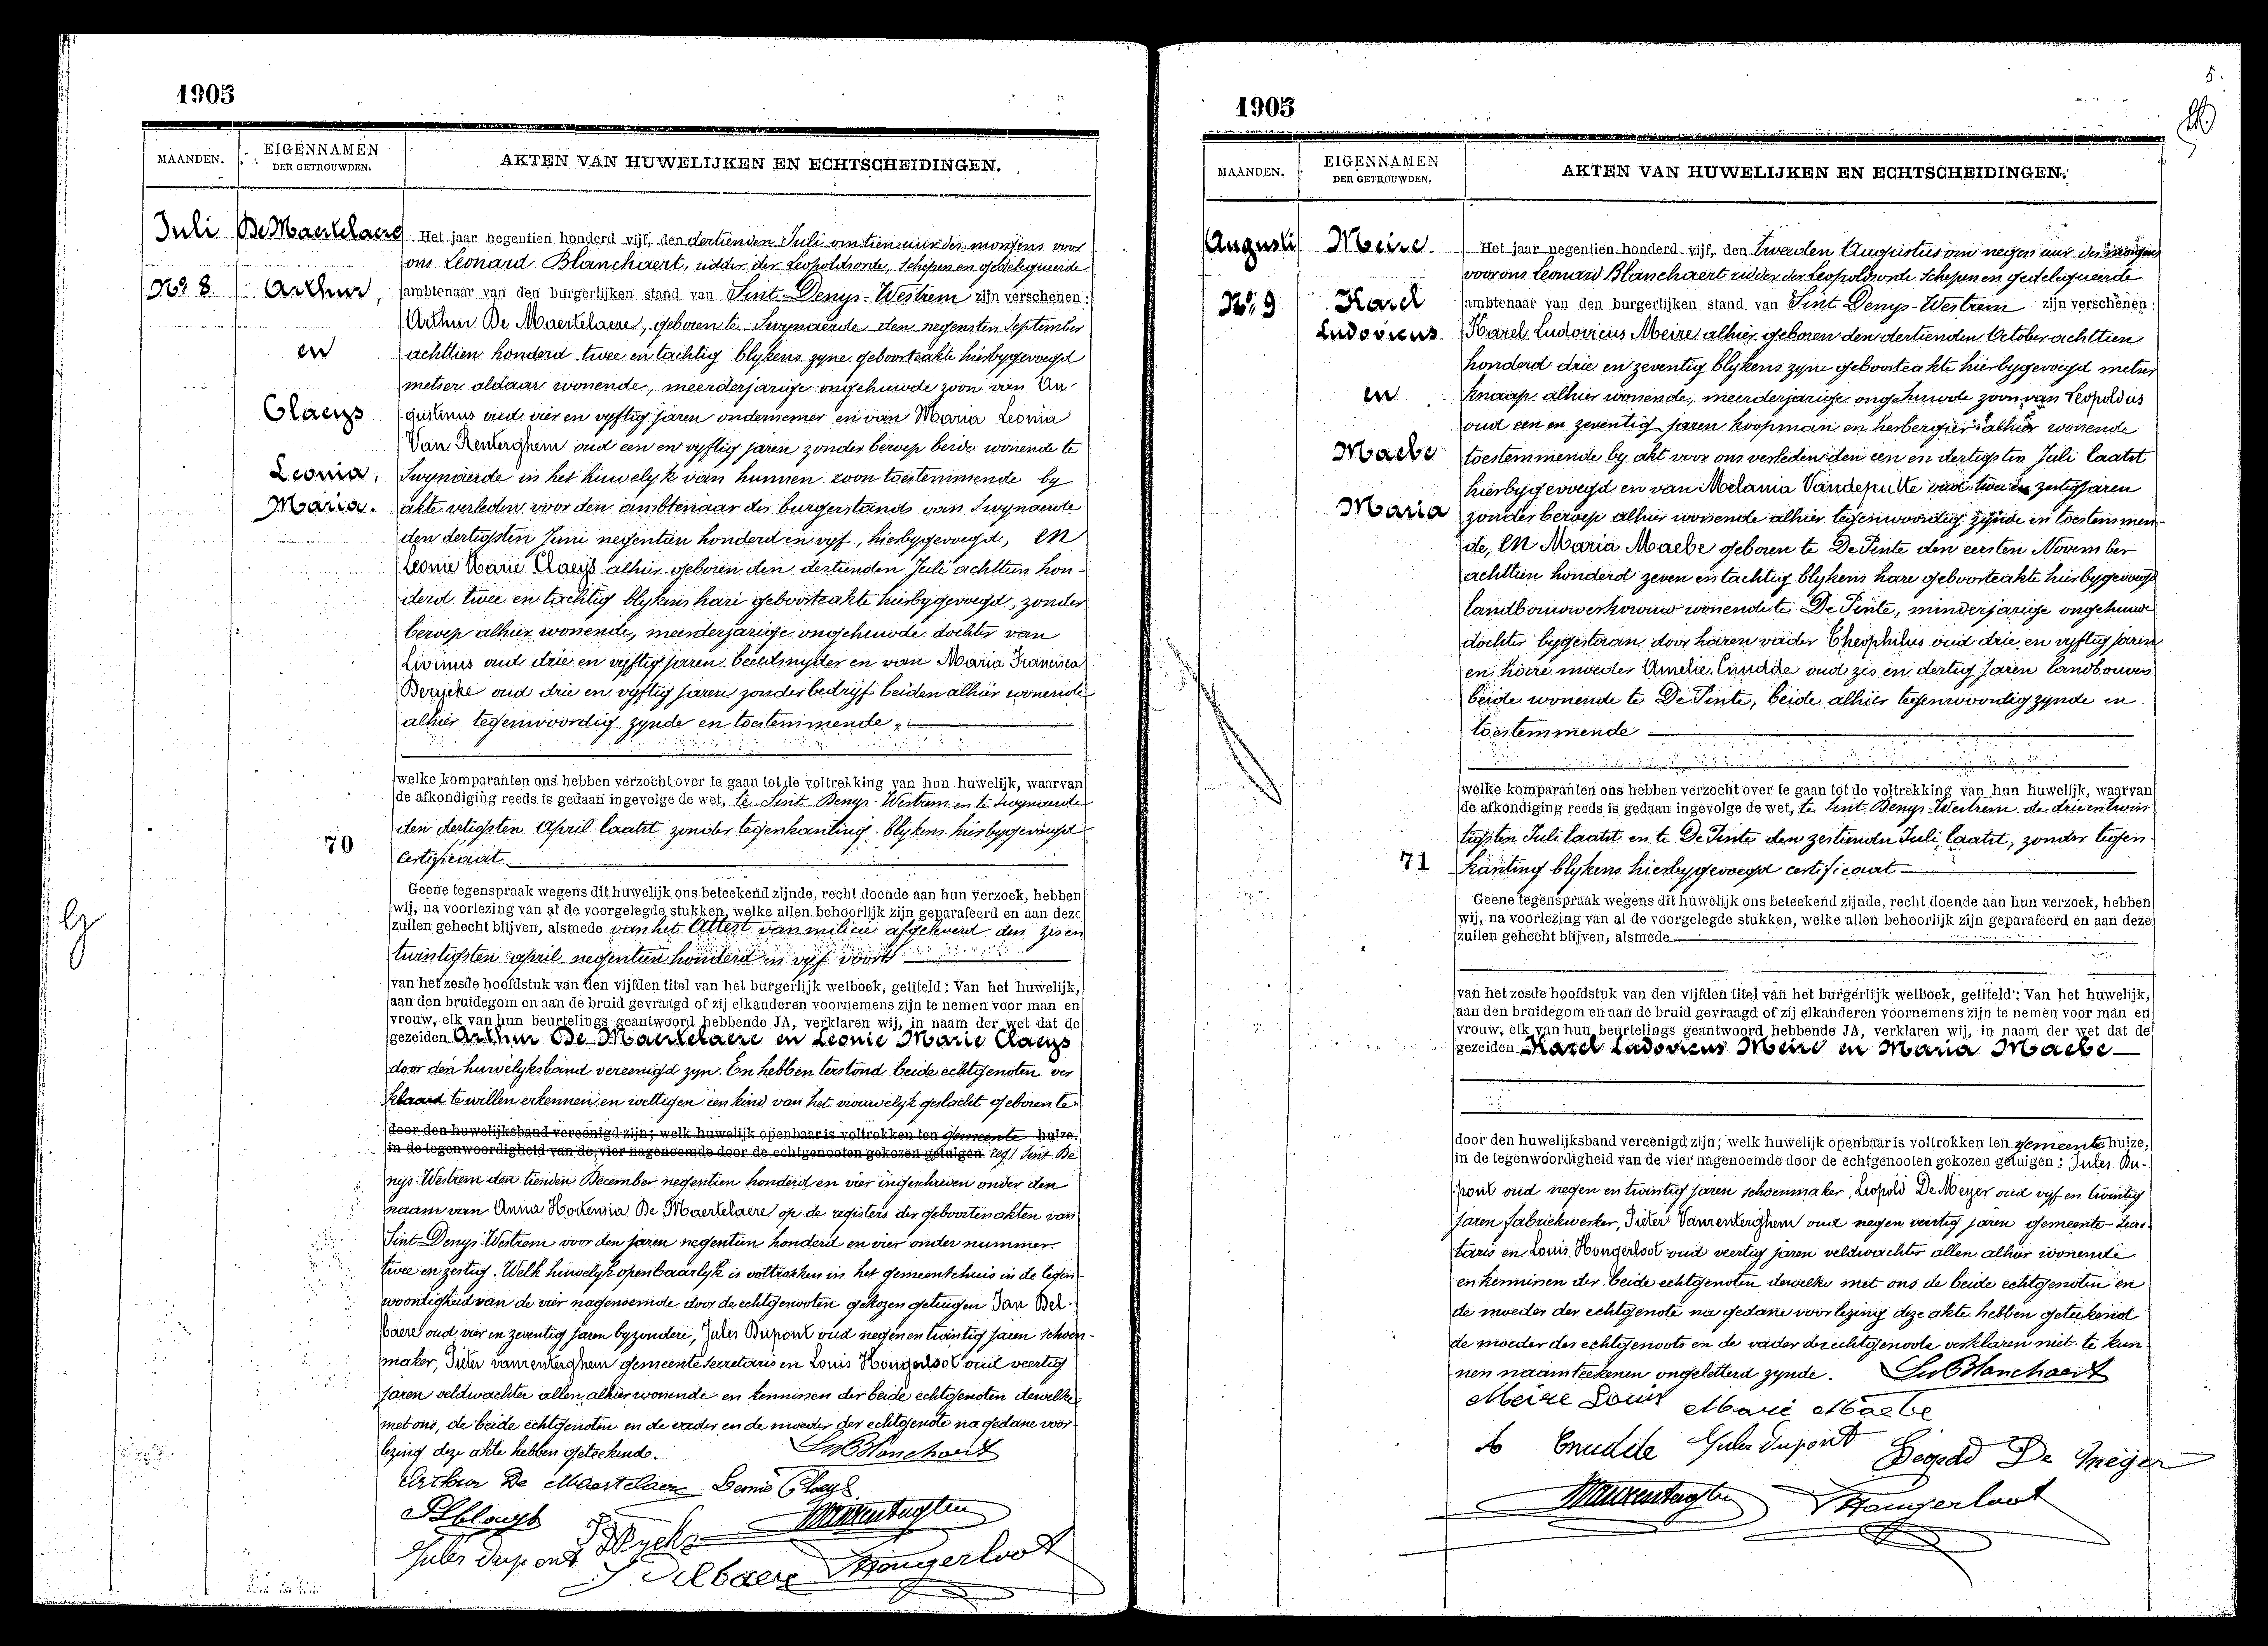 1905
MAANDEN.
EIGENNAMEN
DER GETROUWDEN.
AKTEN VAN HUWELIJKEN EN ECHTSCHEIDINGEN.
Juli
No 8.
De Maertelaere
Arthur,
en
Claeys
Leonia,
Maria.
Het jaar negentien honderd vijf, den dertienden Juli om tien uur des morgens voor
ons Leonard Blanchaert, ridder der Leopoldsorde, Schepen en gedelegueerde
ambtenaar van den burgerlijken stand van Sint-Denys-Westrem zijn verschenen:
Arthur De Maertelaere, geboren te Swynaerde den negensten September
achttien honderd twee en tachtig blykens zyne geboorteakte hierbygevoegd
metser aldaar wonende, meerderjarige ongehuwde zoon van Au-
gustinus oud vier en vyftig jaren ondernemer en van Maria Leonia
Van Renterghem oud een en vyftig jaren zonder beroep beide wonende te
Swynaerde in het huwelyk van hunnen zoon toestemmende by
akte verleden voor den ambtenaar des burgerstands van Swynaerde
den dertigsten Juni negentien honderd en vyf, hierbygevoegd, en
Leonie Marie Claeys alhier geboren den dertienden Juli achttien hon-
derd twee en tachtig blykens hare geboorteakte hierbygevoegd, zonder
beroep alhier wonende, meerderjarige ongehuwde dochter van
Livinus oud drie en vyftig jaren beeldsnyder en van Maria Francisca
Berycke oud drie en vyftig jaren zonder bedryf beiden alhier wonende
alhier tegenwoordig zynde en toestemmende,
welke komparanten ons hebben verzocht over te gaan tot de voltrekking van hun huwelijk, waarvan
de afkondiging reeds is gedaan ingevolge de wet, te Sint Denys-Westrem en te Swynaerde
den dertigsten April laatst zonder tegenkanting blykens hierbygevoegd
certificaat
70
Geene tegenspraak wegens dit huwelijk ons beteekend zijnde, recht doende aan hun verzoek, hebben
wij, na voorlezing van al de voorgelegde stukken, welke allen behoorlijk zijn geparafeerd en aan deze
zullen gehecht blijven, alsmede van het Attest van milicie afgeleverd den zes en
twintigsten april negentien honderd en vyf voorts
van het zesde hoofdstuk van den vijfden titel van het burgerlijk wetboek, getiteld: Van het huwelijk,
aan den bruidegom en aan de bruid gevraagd of zij elkanderen voornemens zijn te nemen voor man en
vrouw, elk van hun beurtelings geantwoord hebbende JA, verklaren wij, in naam der wet dat de
gezeiden Arthur De Maertelaere en Leonie Marie Claeys
door den huwelyksband vereenigd zyn. En hebben terstond beide echtgenoten ver
klaard te willen erkennen en wettigen een kind van het vrouwelyk geslacht geboren te
door den huwelijksband vereenigd zijn; welk huwelijk openbaar is voltrokken ten gemeente huize,
in de tegenwoordigheid van de vier nagenoemde door de echtgenooten gekozen getuigen Sint De
nys-Westrem den tienden December negentien honderd en vier ingeschreven onder den
naam van Anna Hortensia De Maertelaere op de registers der geboortenakten van
Sint-Denys-Westrem voor den jaren negentien honderd en vier onder nummer
twee en zestig. Welk huwelyk openbaarlyk is voltrokken in het gemeentehuis in de tegen-
woordigheid van de vier nagenoemde door de echtgenooten gekozen getuigen Jan Del-
baere oud vier en zeventig jaren byzondere, Jules Dupont oud negen en twintig jaren schoen-
maker, Pieter vanrenterghem gemeente secretaris en Louis Hongerloot oud veertig
jaren veldwachter allen alhier wonende en kennissen der beide echtgenoten dewelke
met ons, de beide echtgenoten en de vader en de moeder der echtgenote na gedane voor
lezing deze akte hebben geteekend.
LvBlanchaert
Arthur De Maertelaere Leonie Claeys
Jules Dupont
J. Delbaere Hongerloot
1905
5.
MAANDEN.
EIGENNAMEN
DER GETROUWDEN.
AKTEN VAN HUWELIJKEN EN ECHTSCHEIDINGEN.
Augusti
No 9
Meire
Karel
Ludovicus
en
Maebe
Maria
Het jaar negentien honderd vijf, den tweeden Augustus om negen uur des morgens
voor ons Leonard Blanchaert ridder der Leopoldsorde Schepen en gedelegueerde
ambtenaar van den burgerlijken stand van Sint Denys-Westrem zijn verschenen:
Karel Ludovicus Meire alhier geboren den dertienden October achttien
honderd drie en zeventig blykens zyne geboorteakte hierbygevoegd metser
knaap alhier wonende, meerderjarige ongehuwde zoon van Leopoldus
oud een en zeventig jaren koopman en herbergier alhier wonende
toestemmende by akt voor ons verleden den een en dertigsten Juli laatst
hierbygevoegd en van Melania Vandeputte oud twee en zestig jaren
zonder beroep alhier wonende alhier tegenwoordig zynde en toestemmen-
de, en Maria Maebe geboren te De Pinte den eersten November
achttien honderd zeven en tachtig blykens hare geboorteakte hierbygevoegd
landbouwwerkvrouw wonende te De Pinte, minderjarige ongehuwde
dochter bygestaan door haren vader Theophilus oud drie en vyftig jaren
en hare moeder Amelie Cnudde oud zes en dertig jaren landbouwers
beide wonende te De Pinte, beide alhier tegenwoordig zynde en
toestemmende
welke komparanten ons hebben verzocht over te gaan tot de voltrekking van hun huwelijk, waarvan
de afkondiging reeds is gedaan ingevolge de wet, te Sint Denys-Westrem de drie en twin
tigsten Juli laatst en te De Pinte den zestienden Juli laatst, zonder tegen-
71
kanting blykens hierbygevoegd certificaat
Geene tegenspraak wegens dit huwelijk ons beteekend zijnde, recht doende aan hun verzoek, hebben
wij, na voorlezing van al de voorgelegde stukken, welke allen behoorlijk zijn geparafeerd en aan deze
zullen gehecht blijven, alsmede
van het zesde hoofdstuk van den vijfden titel van het burgerlijk wetboek, getiteld: Van het huwelijk,
aan den bruidegom en aan de bruid gevraagd of zij elkanderen voornemens zijn te nemen voor man en
vrouw, elk van hun beurtelings geantwoord hebbende JA, verklaren wij, in naam der wet dat de
gezeiden Karel Ludovicus Meire en Maria Maebe
door den huwelijksband vereenigd zijn; welk huwelijk openbaar is voltrokken ten gemeente huize,
in de tegenwoordigheid van de vier nagenoemde door de echtgenooten gekozen getuigen: Jules Du-
pont oud negen en twintig jaren schoenmaker, Leopold De Meyer oud vyf en twintig
jaren fabriekwerker, Pieter Vanrenterghem oud negen veertig jaren gemeente-secre-
taris en Louis Hongerloot oud veertig jaren veldwachter allen alhier wonende
en kennissen der beide echtgenoten dewelke met ons de beide echtgenoten en
de moeder der echtgenote na gedane voorlezing deze akte hebben geteekend
de moeder des echtgenoots en de vader der echtgenoote verklaren niet te kun-
nen naamteekenen ongeletterd zynde. LvBlanchaert
Meire Louis Marie Maebe
Cnudde Jules Dupont Leopold De Meyer
Hongerloot